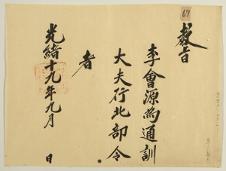 敎旨
李會源為通訓
大夫行北部令
者
光緒十九年九月 日